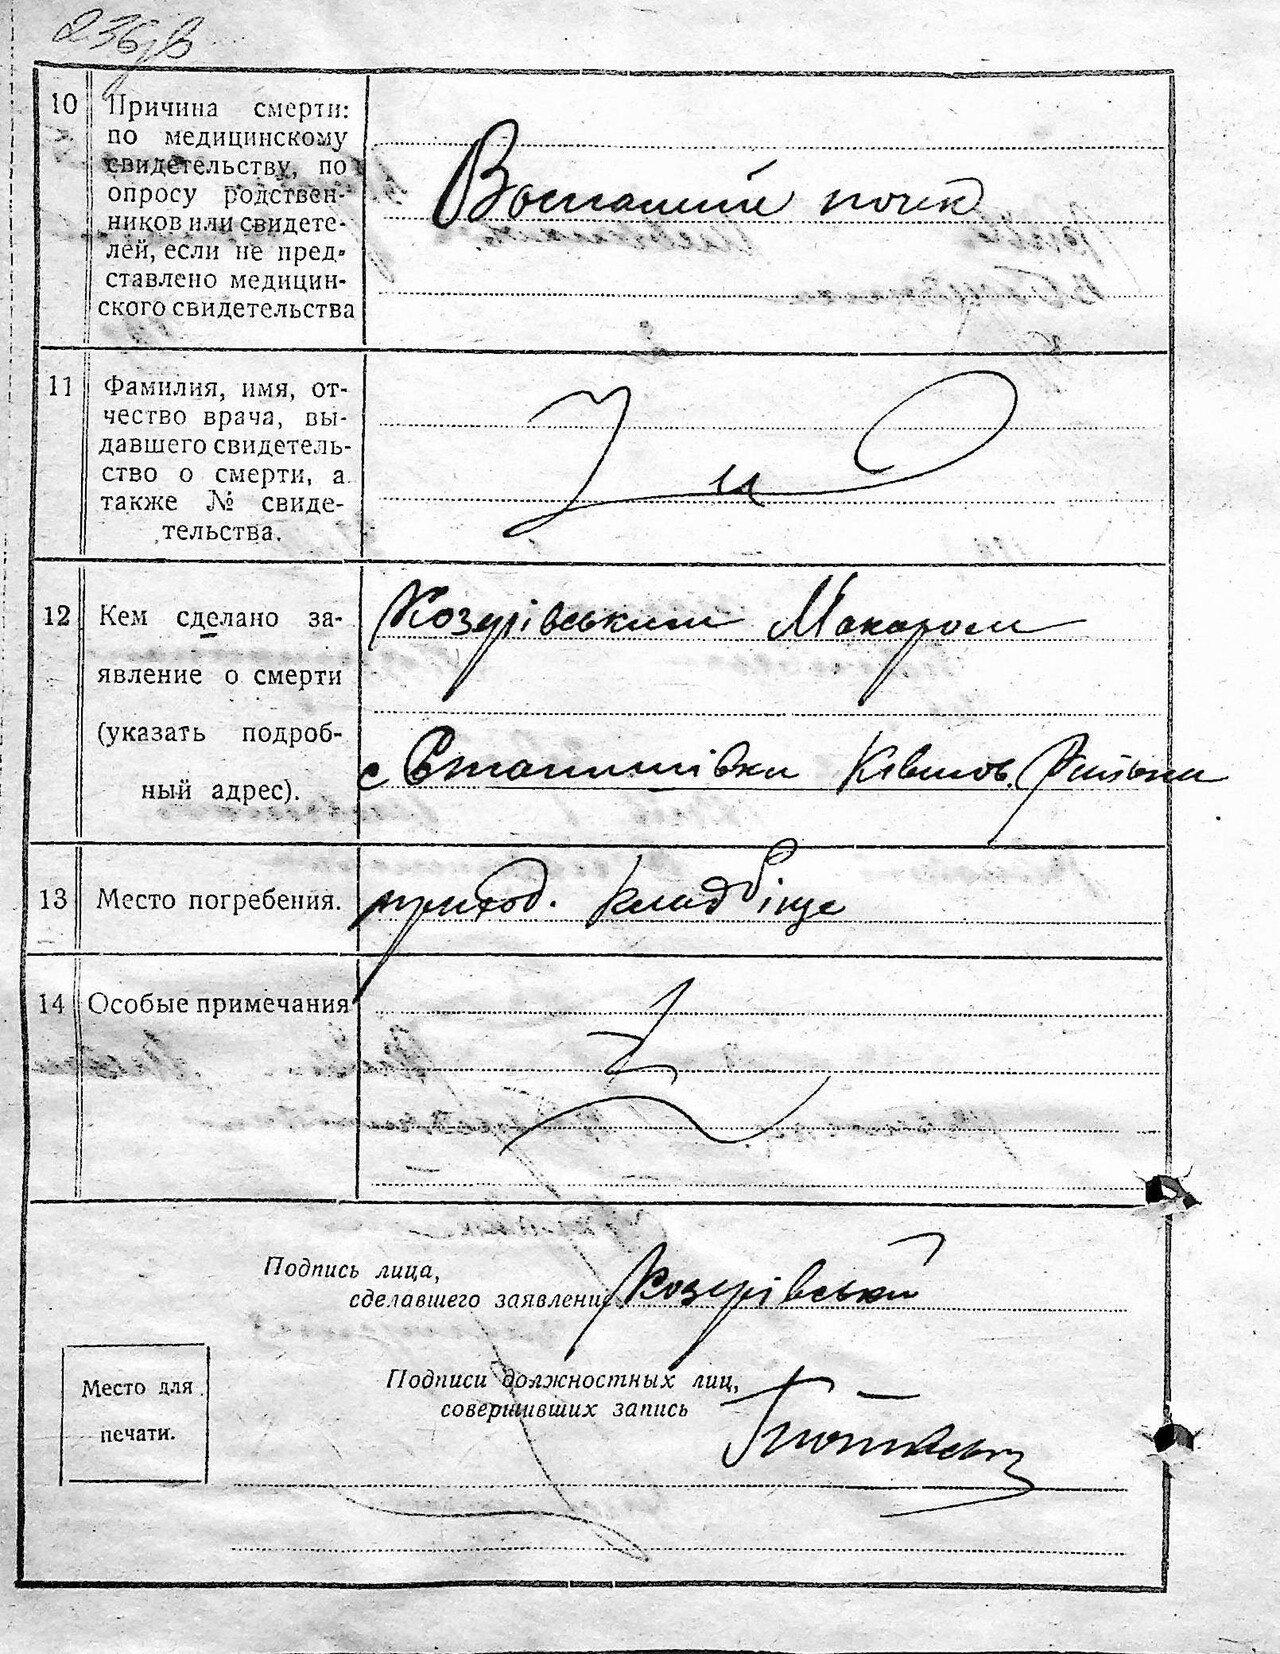 10
Причина смерти:
по медицинскому
свидетельству, по
опросу родствен-
ников или свидете-
лей, если не пред-
ставлено медицин-
ского свидетельства
Воспаление почек
11
Фамилия, имя, от-
чество врача, вы-
давшего свидетель-
ство о смерти, а
также № свиде-
тельства.
12
Кем сделано за-
явление о смерти
(указать подроб-
ный адрес).
Козерівським Макаром
с
13
Место погребения.
приход. кладбіще
14
Особые примечания
Подпись лица,
сделавшего заявление
Козерівський
Место для
печати.
Подписи должностных лиц,
совершивших запись